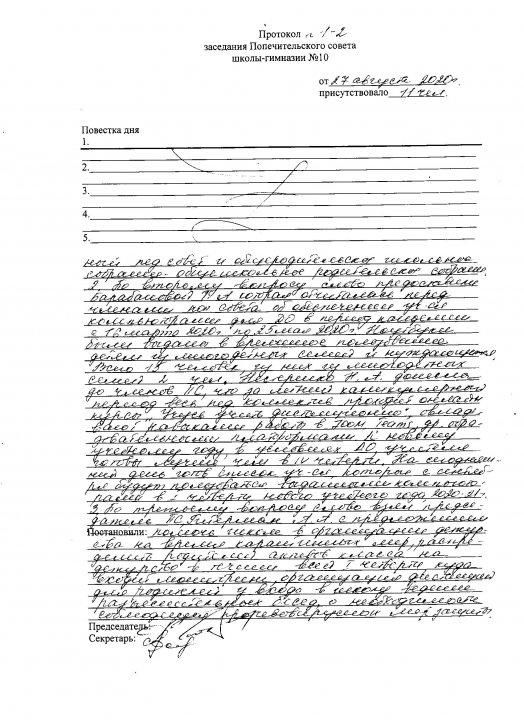 Протокол № 1-2
заседания Попечительского совета
школы-гимназии №10
от 27 августа 2020г.
присутствовало 11 чел.
Повестка дня
1.
2.
3.
4.
5.
ный педсовет и общеродительское школьное
собрание - общешкольное родительское собрание
2. По второму вопросу слово предоставили
Барабановой которая отчиталась перед
членами поп совета об обеспечении уч-ся
компьютерами для ДО в период пандемии
с 16 марта 2020г по 25 мая 2020г. Ноутбуки
были выданы в временное пользование
детям из многодетных семей и нуждающимся.
Всего 13 человек из них из многодетных
семей 2 чел. Н. А. донесла
до членов ПС, что за летний каникулярный
период весь пед коллектив проходит онлайн
курсы, "Учусь учить дистанционно", овлад
вают навыками работ в Zoom, Teams, др. обра-
зовательными платформами. К новому
учебному году, в условиях ДО, учителя
готовы лучше чем в IV четверти. На сегодняш-
ний день готов список уч-ся, которые с сентяб-
ря будут пользоваться выданными компьюте-
рами в 1 четверти нового учебного года 2020-21г.
3. По третьему вопросу слово взял предсе-
датель ПС А.А. с предложением
Постановили: помочь школе в организации дежур-
ства на время карантинных мер, распре-
делить родителей активов класса на
дежурство в течении всей I четверти, куда
входит организация дистанций
для родителей у входа в школу, ведение
разъяснительных бесед о необходимости
соблюдения мер защиты.
Председатель:
Секретарь: